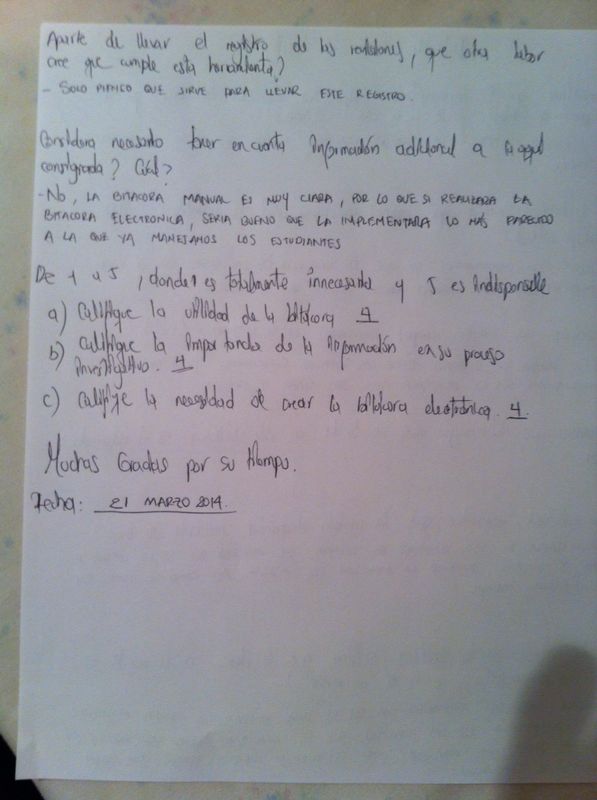 Aparte de llevar el registro de las revisiones, que otra labor
cree que cumple esta herramienta?
- SOLO PIENSO QUE SIRVE PARA LLEVAR ESTE REGISTRO.
Considera necesario tener en cuenta información adicional a la aquí
consignada? Cuál?
- NO, LA BITACORA MANUAL ES MUY CLARA, POR LO QUE SI REALIZARA LA
BITACORA ELECTRONICA, SERIA BUENO QUE LA IMPLEMENTARA LO MÁS PARECIDO
A LA QUE YA MANEJAMOS LOS ESTUDIANTES
De 1 a 5, donde 1 es totalmente innecesaria y 5 es Indispensable
a) Califique la utilidad de la bitácora 4
b) Califique la importancia de la información en su proceso
investigativo. 4
c) Califique la necesidad de crear la bitácora electrónica. 4.
Muchas Gracias por su tiempo.
Fecha: 21 MARZO 2014.